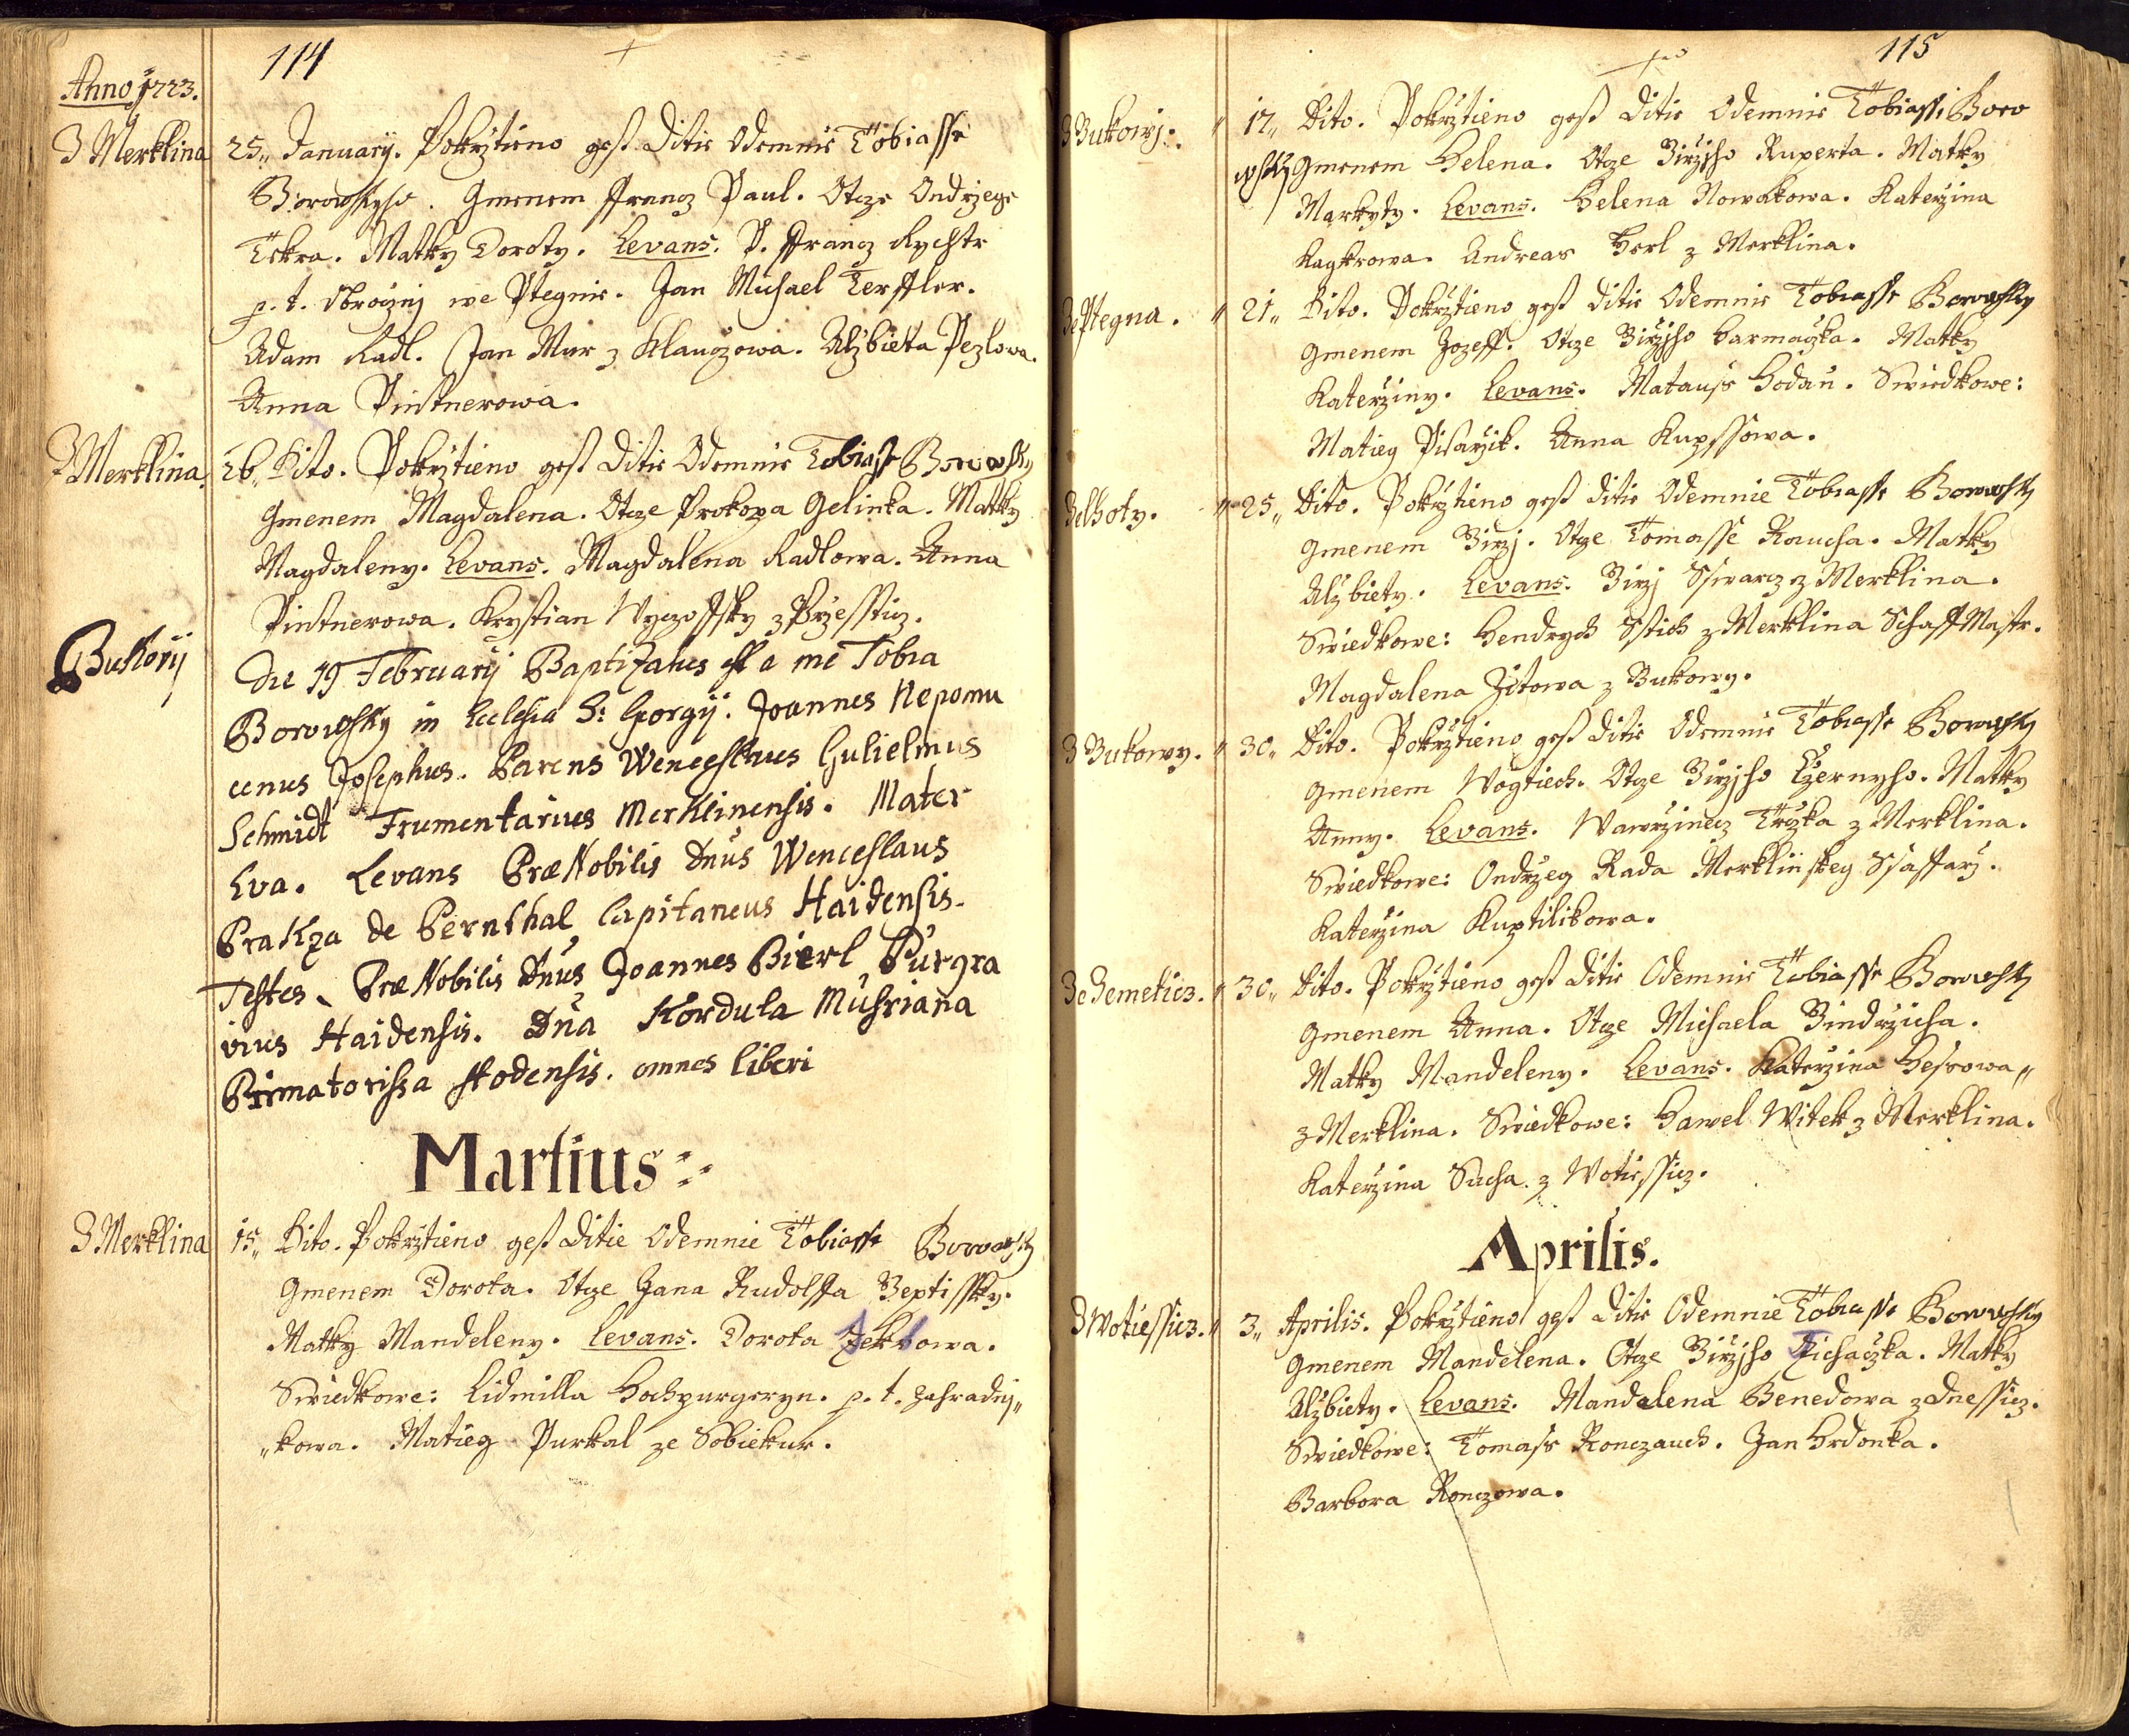 114
Anno 1723.
Z Merklina 25„ January. Pokrztieno gest Ditie Odemnie Tobiasse
Borowskyho. Gmenem Francz Paul. Otcze Ondrzege
Tekra. Matky Doroty. Levans. P. Francz Rychtr
p. t. Obroczni we Ptegnie. Jan Michael Terffler.
Adam Radl. Jan Mur z Klauczowa. Alzbieta Pezlowa.
Anna Pintnerowa.
Z Merklina. 26„ Dito. Pokrztieno gest Ditie Odemnie Tobiasse Borowsky
Gmenem Magdalena. Otcze Prokopa Gelinka. Matky
Magdaleny. Levans. Magdalena Radlowa. Anna
Pintnerowa. Krystian Wyczoffsky z Przessticz.
Bukovy Die 19 February Baptizatus est a me Tobia
Borowsky in Eclesia S: Georgij. Joannes Nepomu
cenus Josephus. Parens Wenceslaus Gulielmus
Schmidt Frumentarius Merklinensis. Mater
Eva. Levans Præ Nobilis Dnus Wenceslaus
Prakza de Pernthal Capitaneus Haidensis.
Testes Præ Nobilis Dnus Joannes Bierl Purgra
vius Haidensis. Dna Kordula Muhriana
Primatorissa stodensis. omnes liberi
Martius
Z Merklina 15„ Dito. Pokrztieno gest Ditie Odemnie Tobiasse Borowsky
Gmenem Dorota. Otcze Jana Rudolffa Beptissky.
Matky Mandeleny. Levans. Dorota Tekrowa.
Swiedkowe: Lidmilla Hochpurgeryn. p. t. Zahradnj„
„kowa. Matieg Purkal ze Sobiekur.
115
Z Bukowj. 17„ Dito. Pokrztieno gest Ditie Odemnie Tobiasse Boro
wsky Gmenem Helena. Otcze Girzjho Ruperta. Matky
Markyty. Levans. Helena Nowakowa. Katerzina
Kagkrowa. Andreas Herl z Merklina.
Ze Ptegna. 21„ Dito. Pokrztieno gest Ditie Odemnie Tobiasse Borowsky
Gmenem Jozeff. Otcze Girzjho Harmaczka. Matky
Katerziny. Levans. Matauss Hodan. Swiedkowe:
Matieg Pisarzik. Anna Kupssowa.
Ze Lhoty. 25„ Dito. Pokrztieno gest Ditie Odemnie Tobiasse Borowsky
Gmenem Girzj. Otcze Tomasse Raucha. Matky
Alzbiety. Levans. Girzj Sswarcz z Merklina.
Swiedkowe: Hendrych Sstich z Merklina Schaff Mastr.
Magdalena Zitowa z Bukowy.
Z Bukowy. 30„ Dito. Pokrztieno gest Ditie Odemnie Tobiasse Borowsky
Gmenem Wogtiech. Otcze Girzjho Czernyho. Matky
Anny. Levans. Wawrzinecz Trczka z Merklina.
Swiedkowe: Ondrzeg Rada Merklinskey Ssaffarz.
Katerzina Kuptilikowa.
Ze Zemeticz. 30„ Dito. Pokrztieno gest Ditie Odemnie Tobiasse Borowsky
Gmenem Anna. Otcze Michaela Gindrzicha.
Matky Mandeleny. Levans. Katerzina Hessowa„
z Merklina. Swiedkowe: Hawel Witek z Merklina.
Katerzina Sucha z Wotiessicz.
Aprilis.
Z Wotiessicz. 3„ Aprilis. Pokrztieno gest Ditie Odemnie Tobiasse Borowsky
Gmenem Mandelena. Otcze Girzjho Tichaczka. Matky
Alzbiety. Levans. Mandelena Benedowa z Dnessicz.
Swiedkowe: Tomass Ronczauch. Jan Hrdonka.
Barbora Ronczowa.